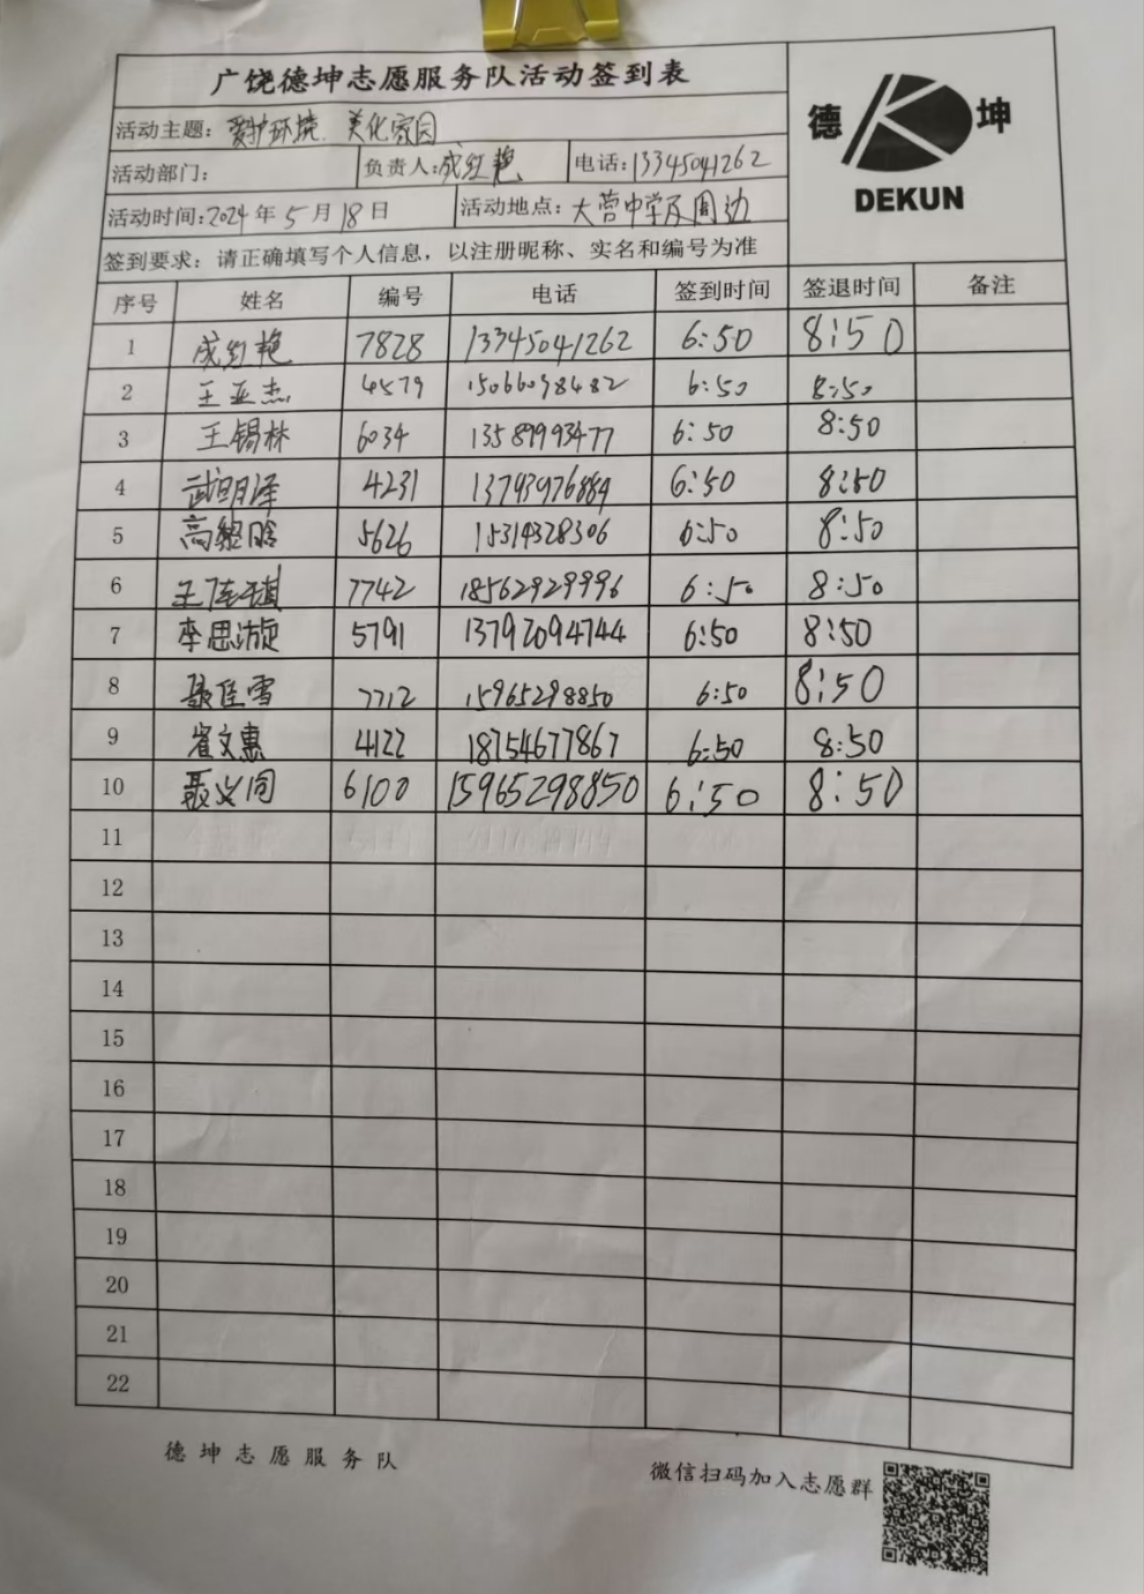 广饶德坤志愿服务队活动签到表
德 坤
DEKUN
活动主题：爱护环境、美化家园
活动部门： 负责人：成红艳 电话：13345041262
活动时间：2024年5月18日 活动地点：大营中学及周边
签到要求：请正确填写个人信息，以注册昵称、实名和编号为准
序号 姓名 编号 电话 签到时间 签退时间 备注
1 成红艳 7828 13345041262 6:50 8:50
2 王亚杰 4579 15066098482 6:50 8:50
3 王锡林 6034 13589993477 6:50 8:50
4 武明泽 4231 13793976884 6:50 8:50
5 高黎晗 5626 15314328306 6:50 8:50
6 王 琪 7742 18562929996 6:50 8:50
7 李思漩 5791 13792094744 6:50 8:50
8 聂佳雪 7712 15965298850 6:50 8:50
9 崔文惠 4122 18754677867 6:50 8:50
10 聂义同 6100 15965298850 6:50 8:50
11
12
13
14
15
16
17
18
19
20
21
22
德坤志愿服务队
微信扫码加入志愿群